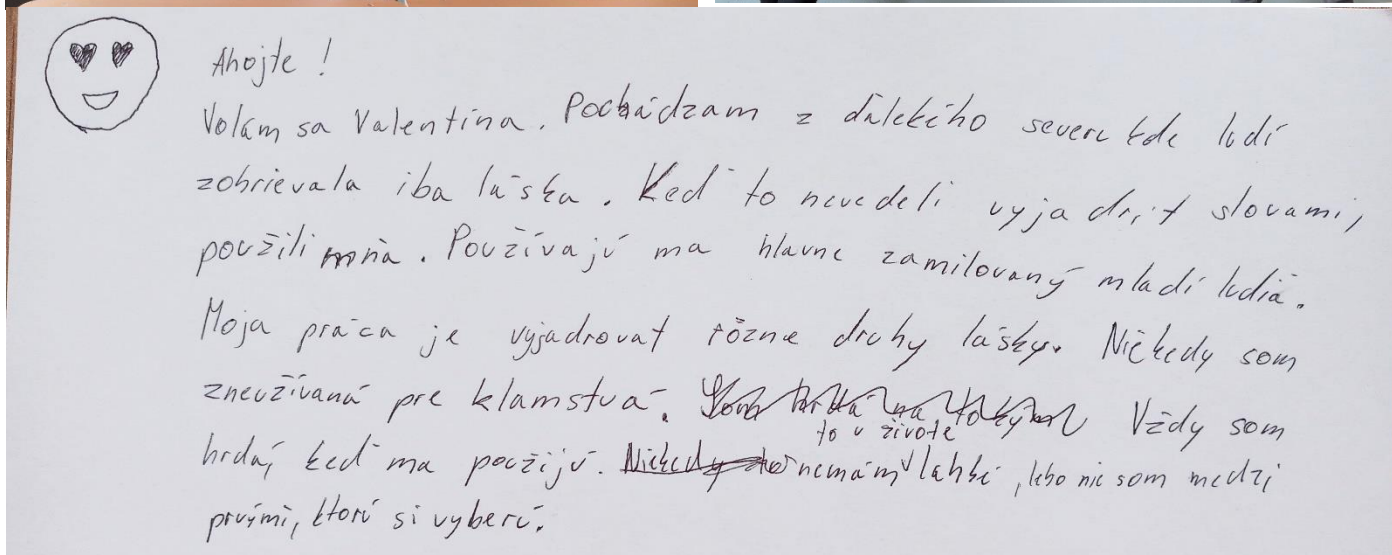 Ahojte !
Volám sa Valentína. Pochádzam z ďalekého severu kde ludí
zohrievala iba láska. Keď to nevedeli vyjadriť slovami,
použili mňa. Používajú ma hlavne zamilovaný mladí ludia.
Moja práca je vyjadrovat rôzne druhy lásky. Niekedy som
zneužívaná pre klamstvá. Vždy som
hrdá, keď ma použijú. nemám to v živote lahké, lebo nie som medzi
prvými, ktorú si vyberú.